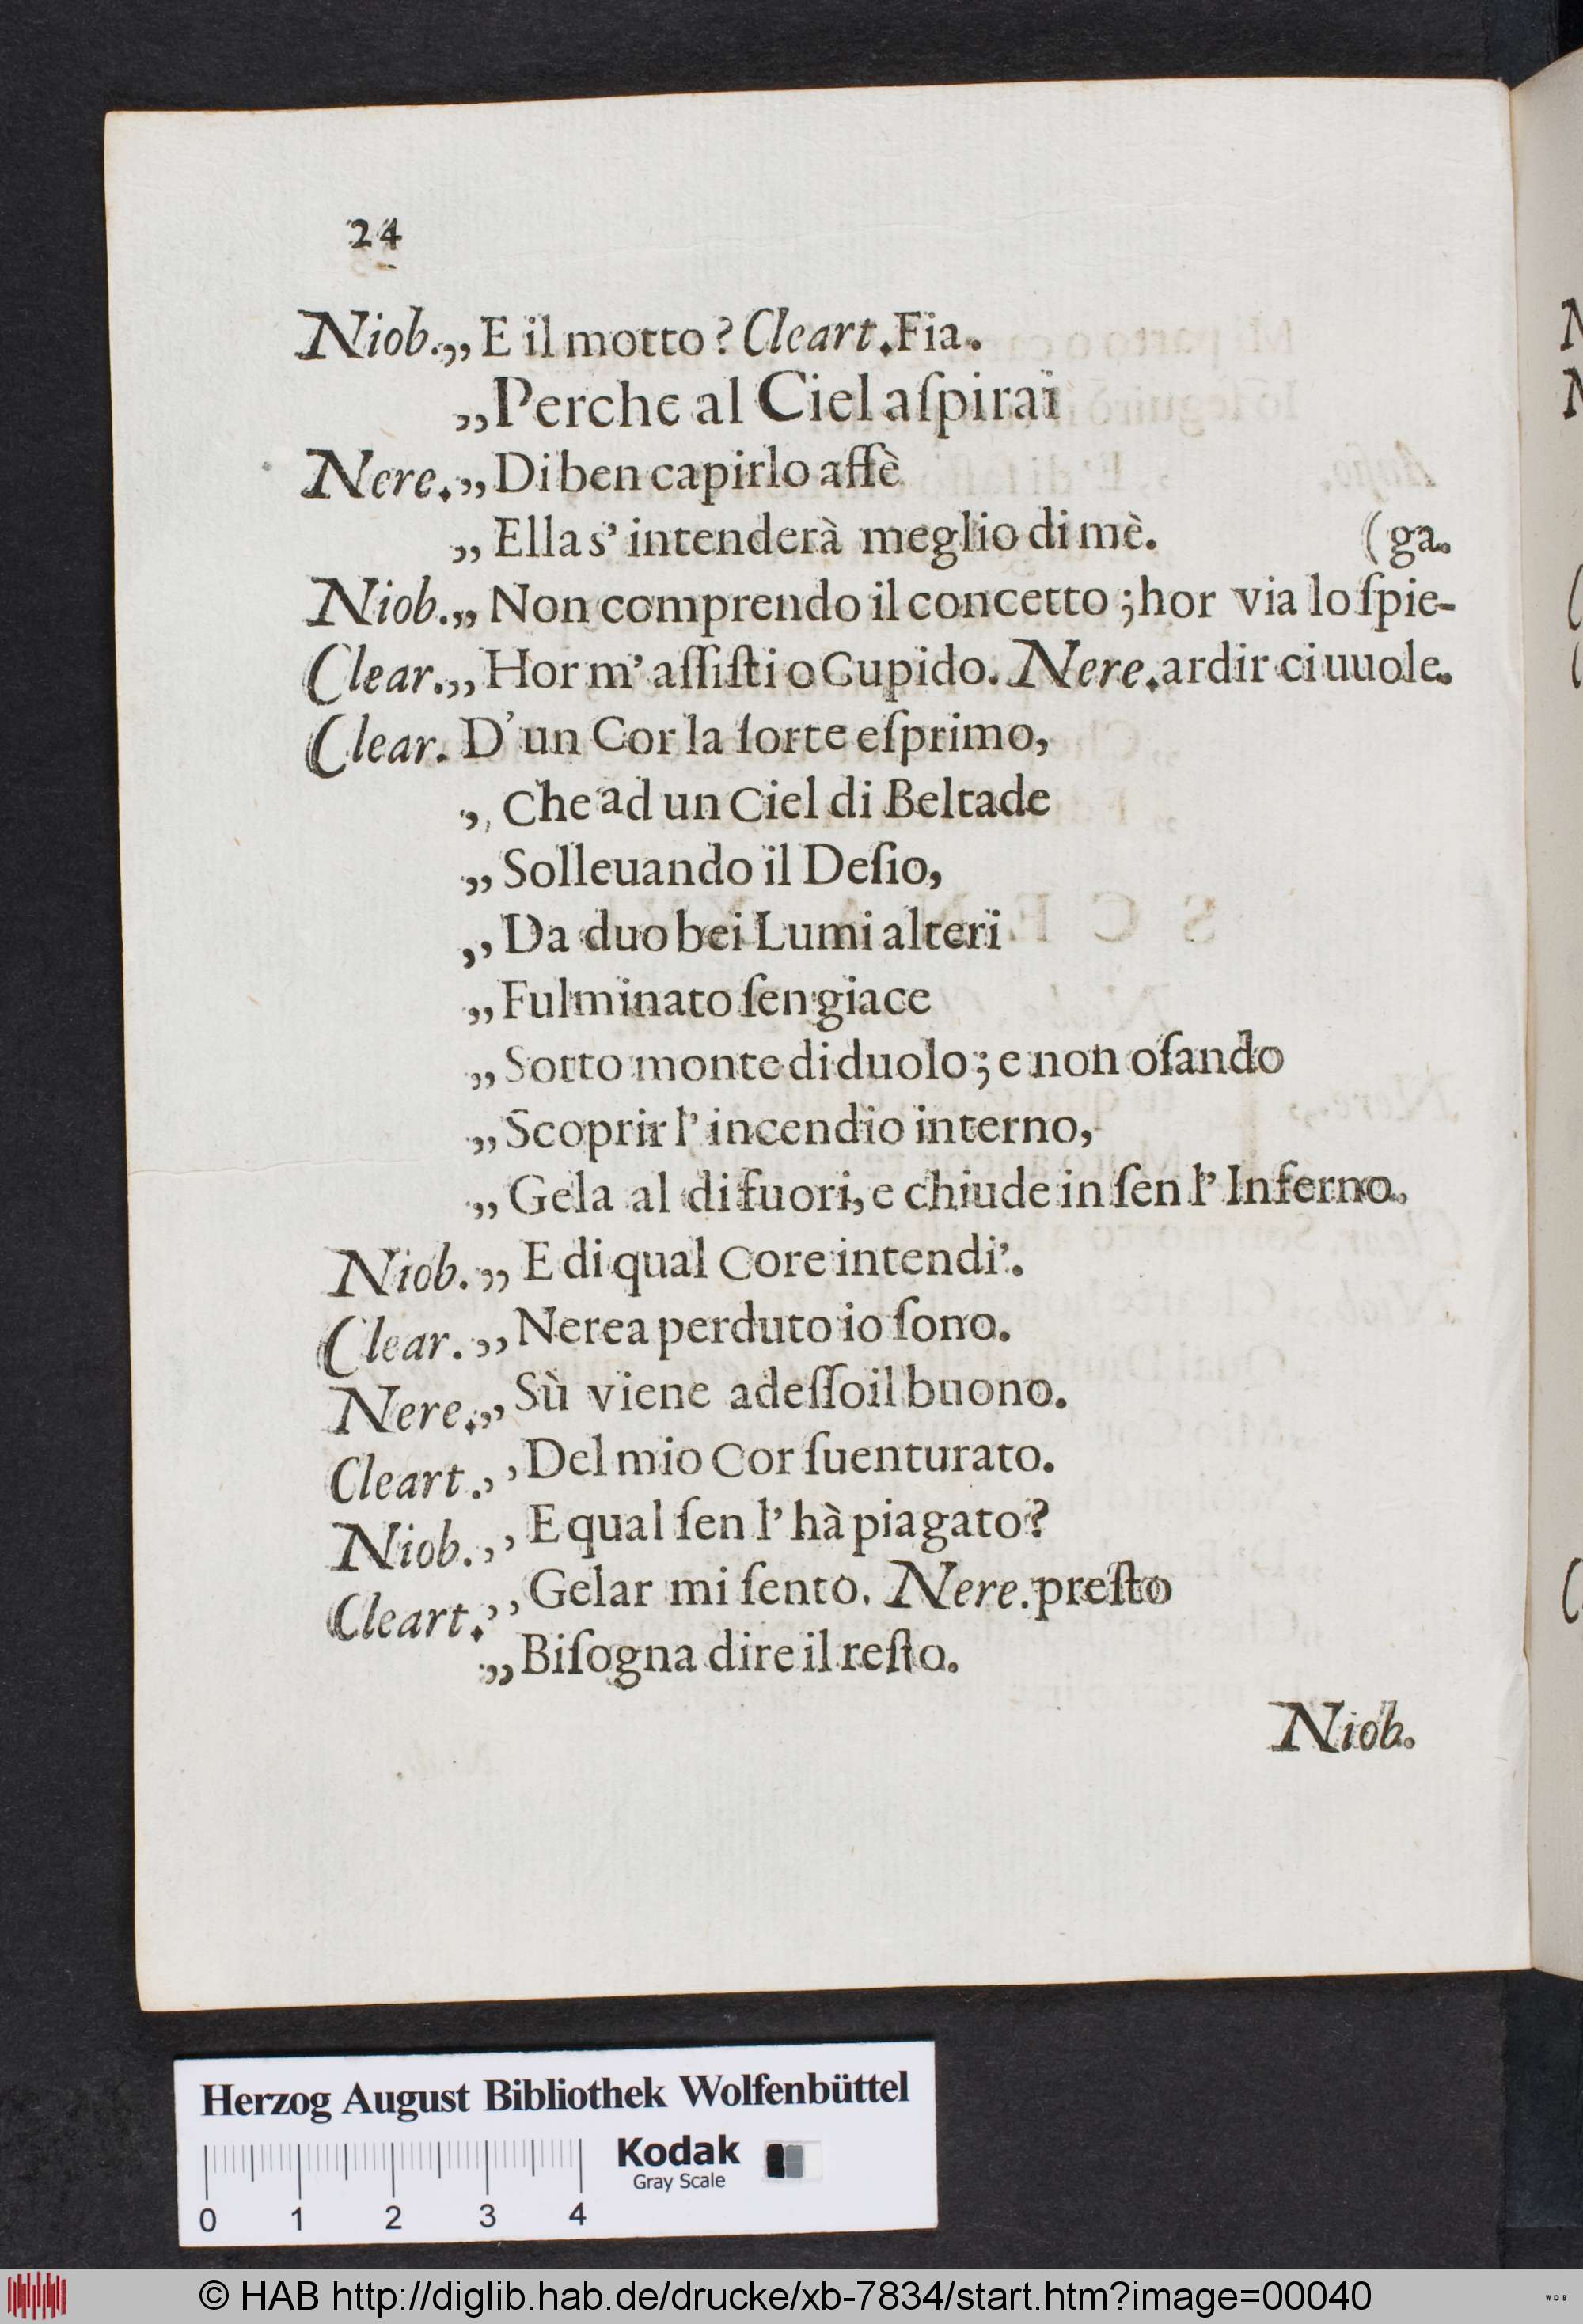 24
Niob.„ E il motto? Cleart. Fia.
„Perche al Ciel aſpirai
Nere.„ Di ben capirlo affè
„ Ella s' intenderà meglio di mè. (ga.
Niob.„ Non comprendo il concetto; hor via lo ſpie-
Clear.„ Hor m' aſſiſti o Cupido. Nere. ardir ci uuole.
Clear. D' un Cor la ſorte eſprimo,
„ Che ad un Ciel di Beltade
„ Solleuando il Deſio,
„ Da duo bei Lumi alteri
„ Fulminato ſen giace
„ Sotto monte di duolo; e non oſando
„ Scoprir l' incendio interno,
„ Gela al di fuori, e chiude in ſen l' Inferno.
Niob. „ E di qual Core intendi'.
Clear. „ Nerea perduto io ſono.
Nere.„ Sù viene adeſſo il buono.
Cleart.„ Del mio Cor ſuenturato.
Niob.„ E qual ſen l' hà piagato?
Cleart.„ Gelar mi ſento. Nere. preſto
„ Biſogna dire il reſto.
Niob.
Herzog August Bibliothek Wolfenbüttel
Kodak
Gray Scale
0 1 2 3 4
© HAB http://diglib.hab.de/drucke/xb-7834/start.htm?image=00040
WDB